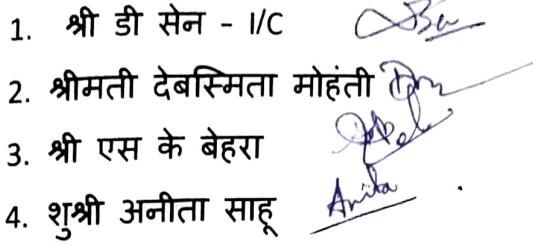 1. श्री डी सेन - I/C
2. श्रीमती देबस्मिता मोहंती
3. श्री एस के बेहरा
4. शुश्री अनीता साहू Anita